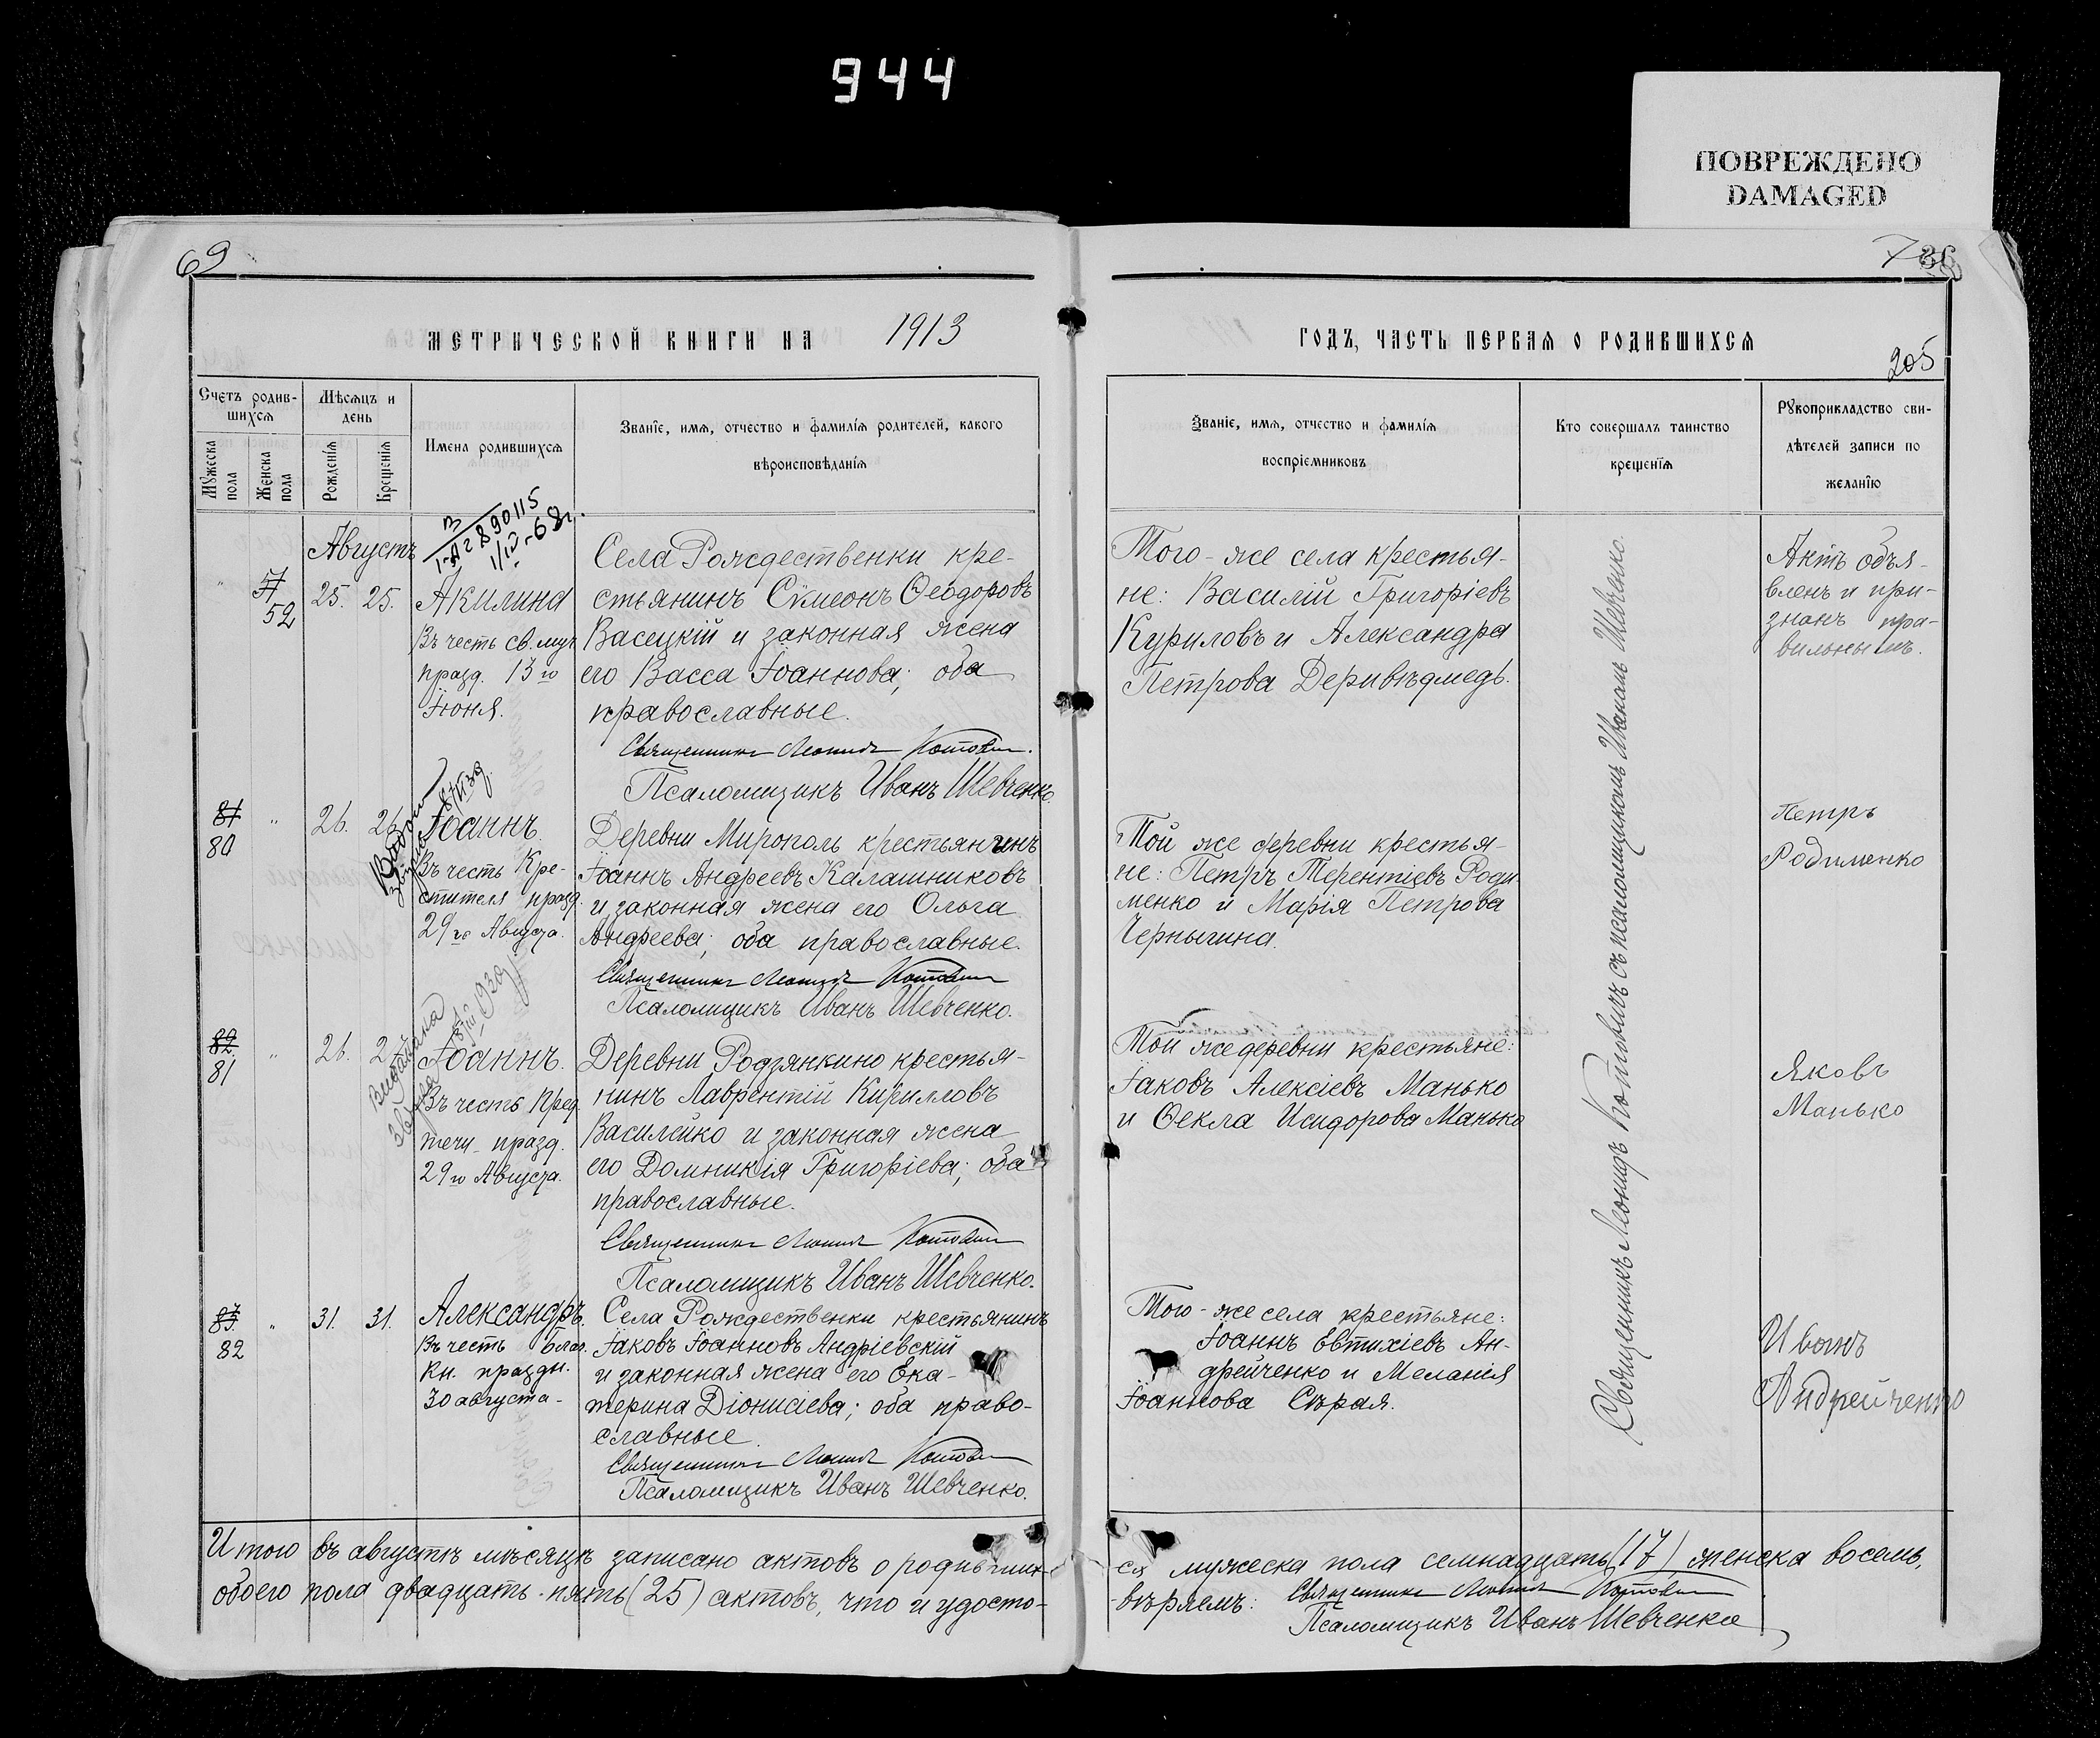 944
ПОВРЕЖДЕНО
DAMAGED
69
МЕТРИЧЕСКОЙ КНИГИ НА 1913
Счетъ родив-
шихся
Мѣсяцъ и
день
Имена родившихся
Званіе, имя, отчество и фамилія родителей, какого
вѣроисповѣданія
Мужеска
пола
Женска
пола
Рожденія
Крещенія
Августъ
52 25. 25. Акилина
Въ честь св. муч.
празд. 13го
Іюня.
Села Рождественки кре-
стьянинъ Сѵмеонъ Ѳеодоровъ
Васецкій и законная жена
его Васса Іоаннова; оба
православные.
Священникъ Леонидъ Котович
Псаломщикъ Иванъ Шевченко
81
80 " 26. 26. Іоаннъ.
Въ честь Кре-
стителя празд.
29го Августа.
Деревни Мирополь крестьянинъ
Іоаннъ Андреевъ Калашниковъ
и законная жена его Ольга
Андреева; оба православные.
Священникъ Леонидъ Котович
Псаломщикъ Иванъ Шевченко.
82
81 " 26. Іоаннъ.
Въ честь Пред
течи празд.
29го Августа.
Деревни Родзянкино крестья-
нинъ Лаврентій Кирилловъ
Василейко и законная жена
его Домникія Григоріева; оба
православные.
Священникъ Леонидъ Котович
Псаломщикъ Иванъ Шевченко.
83.
82 " 31. 31. Александръ.
Въ честь благ.
Кн. праздн.
30 августа-
Села Рождественки крестьянинъ
Іаковъ Іоанновъ Андріевскій
и законная жена его Ека-
терина Діонисіева; оба право-
славные.
Священникъ Леонидъ Котович
Псаломщикъ Иванъ Шевченко.
Итого въ августѣ мѣсяцѣ записано актовъ о родивших-
обоего пола двадцать-пять (25) актовъ, что и удосто-
ГОДЪ, ЧАСТЬ ПЕРВАЯ О РОДИВШИХСЯ
205
Званіе, имя, отчество и фамилія
воспріемниковъ
Кто совершалъ таинство
крещенія
Рукоприкладство сви-
дѣтелей записи по
желанію
Того-же села крестья-
не: Василій Григоріевъ
Куриловъ и Александра
Петрова Деривѣдмедь.
Актъ объя-
вленъ и при-
знанъ пра-
вильнымъ.
Той же деревни крестья-
не: Петръ Терентіевъ Роди-
менко и Марія Петрова
Чернычина.
Петръ
Родименко
Той же деревни крестьяне:
Іаковъ Алексіевъ Манько
и Ѳекла Исидорова Манько
Яковъ
Манько
Того-же села крестьяне:
Іоаннъ Евтихіевъ Ан-
дрейченко и Меланія
Іоаннова Сѣрая.
Иванъ
Андрейченко
Священникъ Леонидъ Котовичъ съ псаломщикомъ Иваномъ Шевченко.
ся мужеска пола семнадцать (17), женска восемь,
-вѣряемъ: Священникъ Леонидъ Котович
Псаломщикъ Иванъ Шевченко